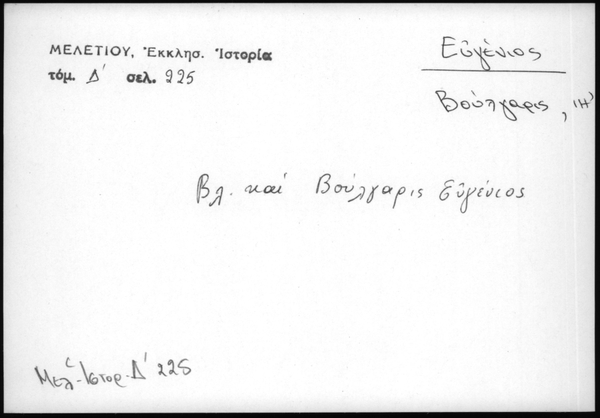 ΜΕΛΕΤΙΟΥ, Ἐκκλησ. Ἱστορία
τόμ. Δ΄ σελ. 225
Εὐγένιος
Βούλγαρις, ιη'
Βλ. καί Βούλγαρις Εὐγένιος
Μελ. Ἱστορ. Δ΄ 225